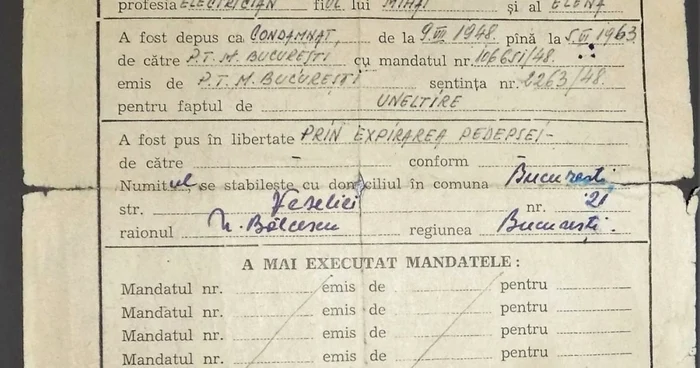 profesia ELECTRICIAN fiul lui MIHAI și al ELENA
A fost depus ca CONDAMNAT, de la 9.VII 1948 pînă la 5.VII 1963
de către P.T.M. BUCUREȘTI cu mandatul nr. 106651/48.
emis de P.T.M. BUCUREȘTI sentința nr. 2263/48.
pentru faptul de UNELTIRE
A fost pus în libertate PRIN EXPIRAREA PEDEPSEI-
de către - conform -
Numitul se stabilește cu domiciliul în comuna București
str. Veseliei nr. 21
raionul N. Bălcescu regiunea București.
A MAI EXECUTAT MANDATELE:
Mandatul nr. emis de pentru
Mandatul nr. emis de pentru
Mandatul nr. emis de pentru
Mandatul nr. emis de pentru